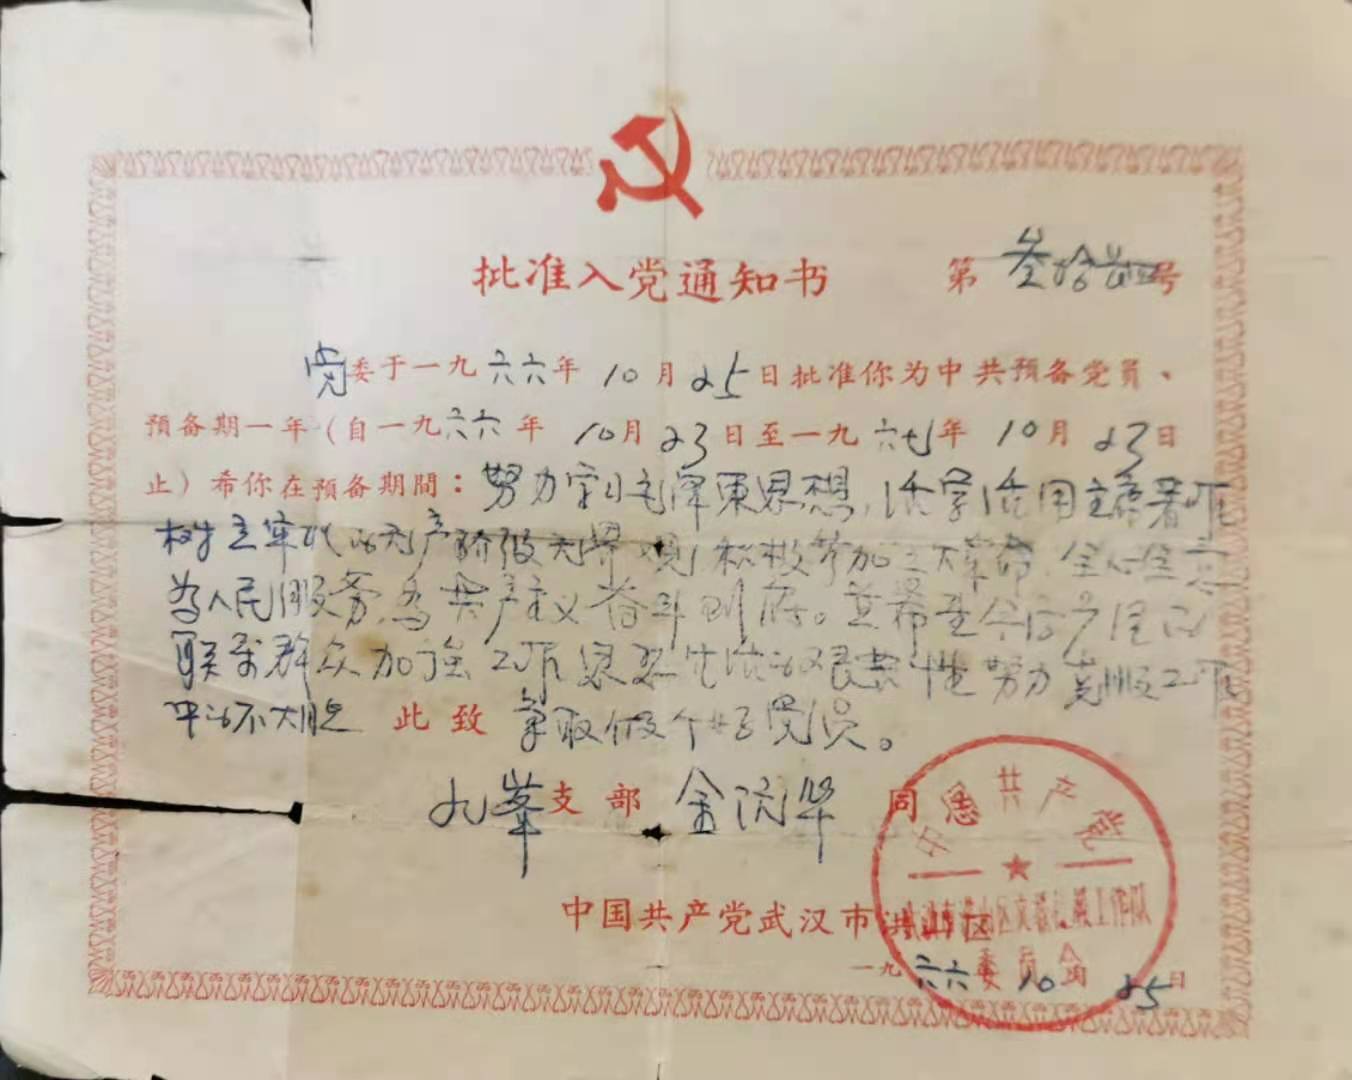 批准入党通知书 第 叁拾 号
党委于一九六六年 10月25日批准你为中共预备党员、
预备期一年(自一九六六年 10月23日至一九六七年 10月23日
止)希你在预备期間:努力学习毛泽东思想,活学活用主席著作
树立牢 的无产阶级世界观,积极参加三大革命,全心全意
为人民服务,为共产主义奋斗到底。并希
联系群众加强工作 性努力克服工作
中的不大胆 此致 争取做个好党员。
九峯支部 金 华 同志
中国共产党武汉市洪山区
一九六六年10月25日
中国共产党
委员会